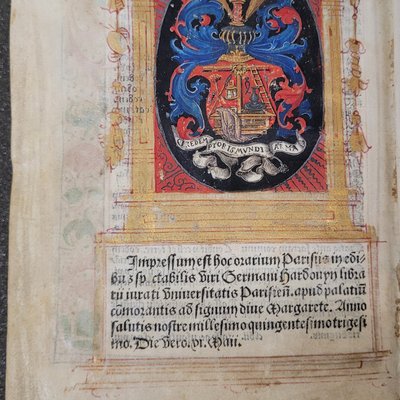 REDEMPTORIS MVNDI ARMA
Impressum est hoc orarium Parisiis in edi-
bus spectabilis viri Germani Hardouyn libra
rii iurati vniuersitatis Parisien. apud palatiū
cōmorantis ad signum diue Margarete. Anno
salutis nostre millesimo quingentesimo trigesi
mo. Die vero. vi. Maii.